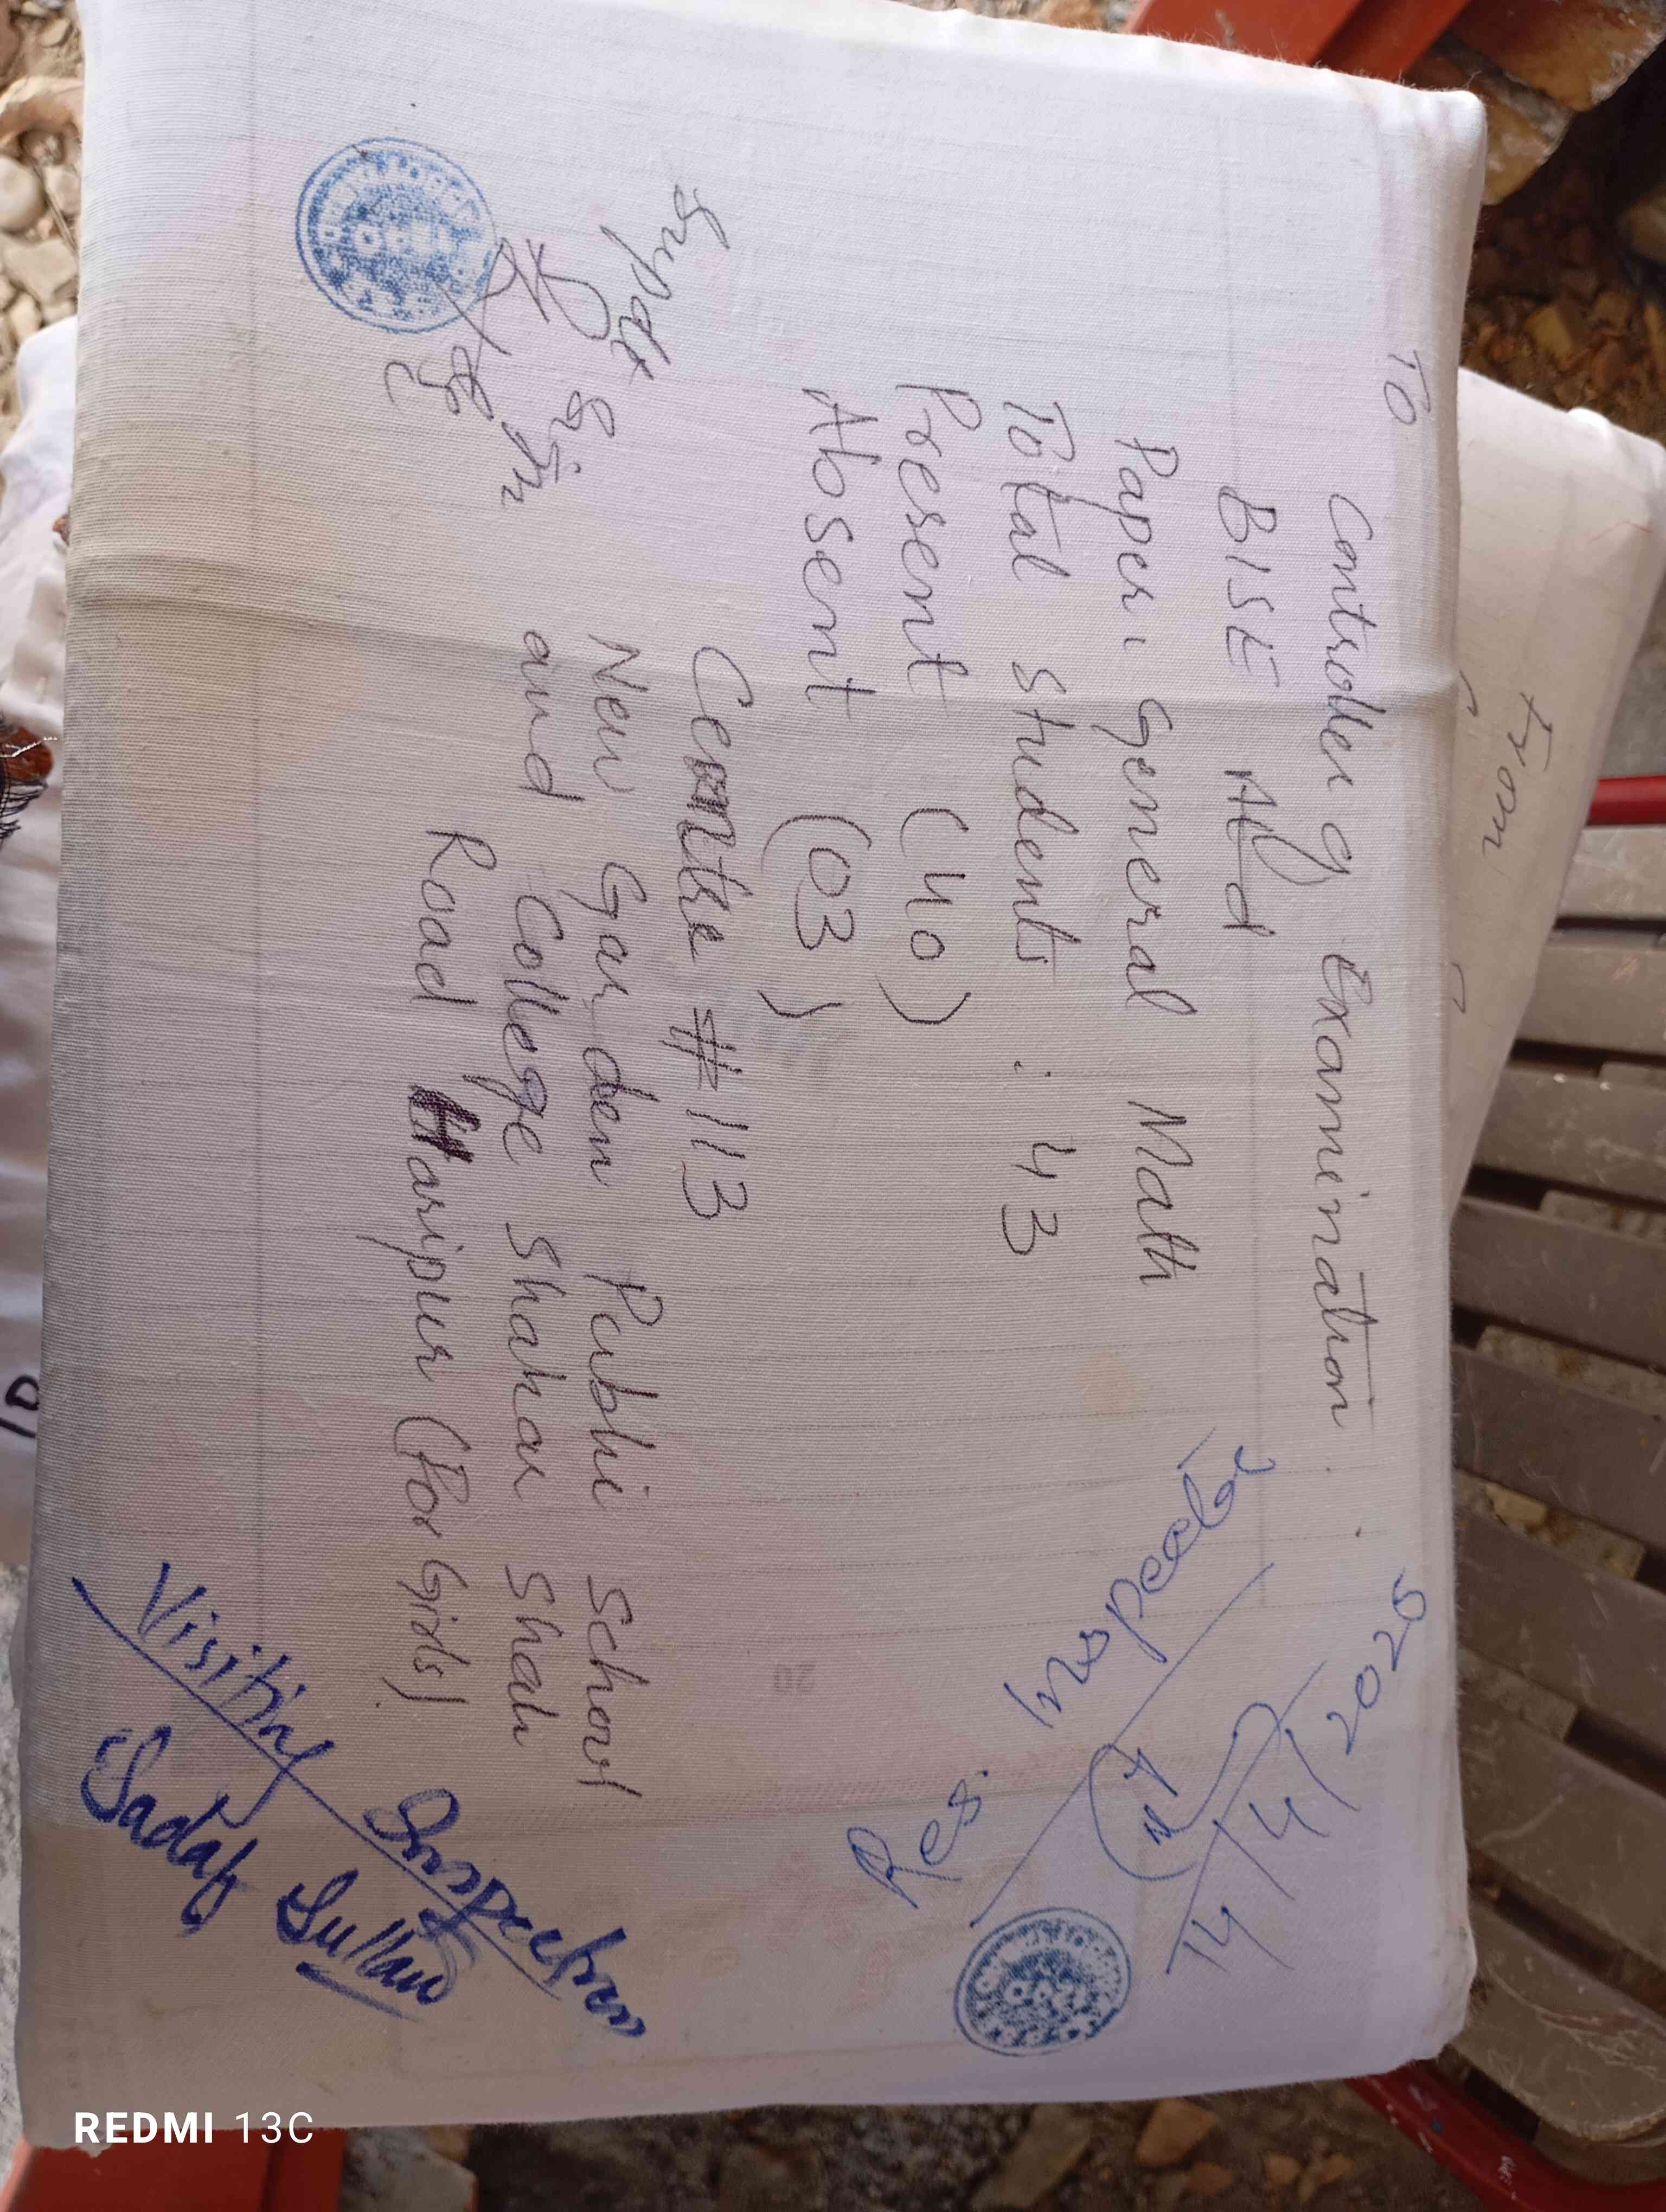 TO
Controller of Examination.
BISE Atd
Paper: General Math
Total students : 43
Present (40)
Absent (03)
Centre # 113
New Garden Publi School
and College Shakar Shah
Road Haripur (For Girls)
Supdt
Res. Inspector
14/4/2025
Visiting Inspector
Sadaf Sultan
From
20
REDMI 13C